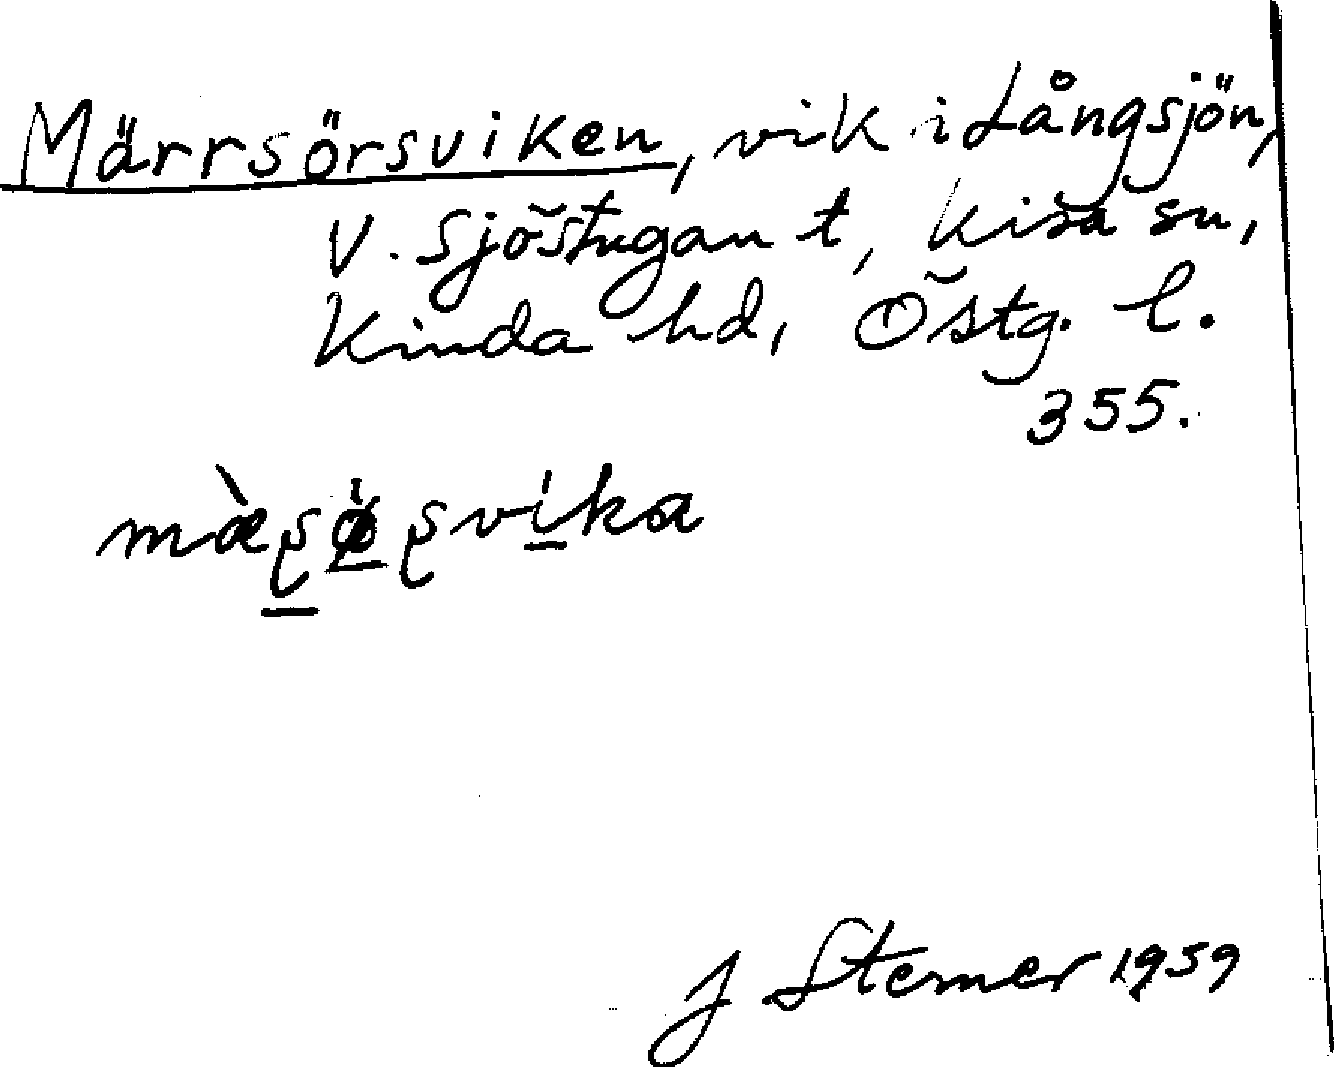 Märrsörsviken, vik i Långsjön,
V. Sjöstugan t, Kisa sn,
Kinda hd, Östg. l.
355.
J Sterner 1959